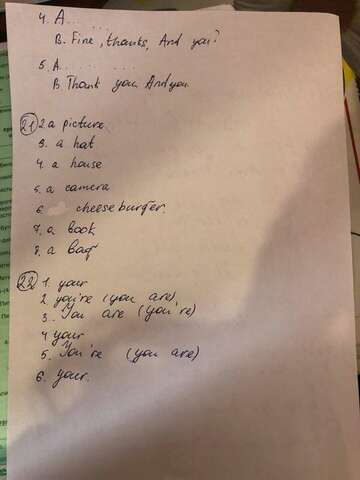 4. A......
B. Fine, thanks, And you?
5. A.......
B Thank you. And you.
21 2. a picture
3. a hat
4. a house
5. a camera
6 cheeseburger.
7. a book
8. a bag
22 1. your
2. you're (you are)
3. You are (you're)
4 your
5. You're (you are)
6. your.